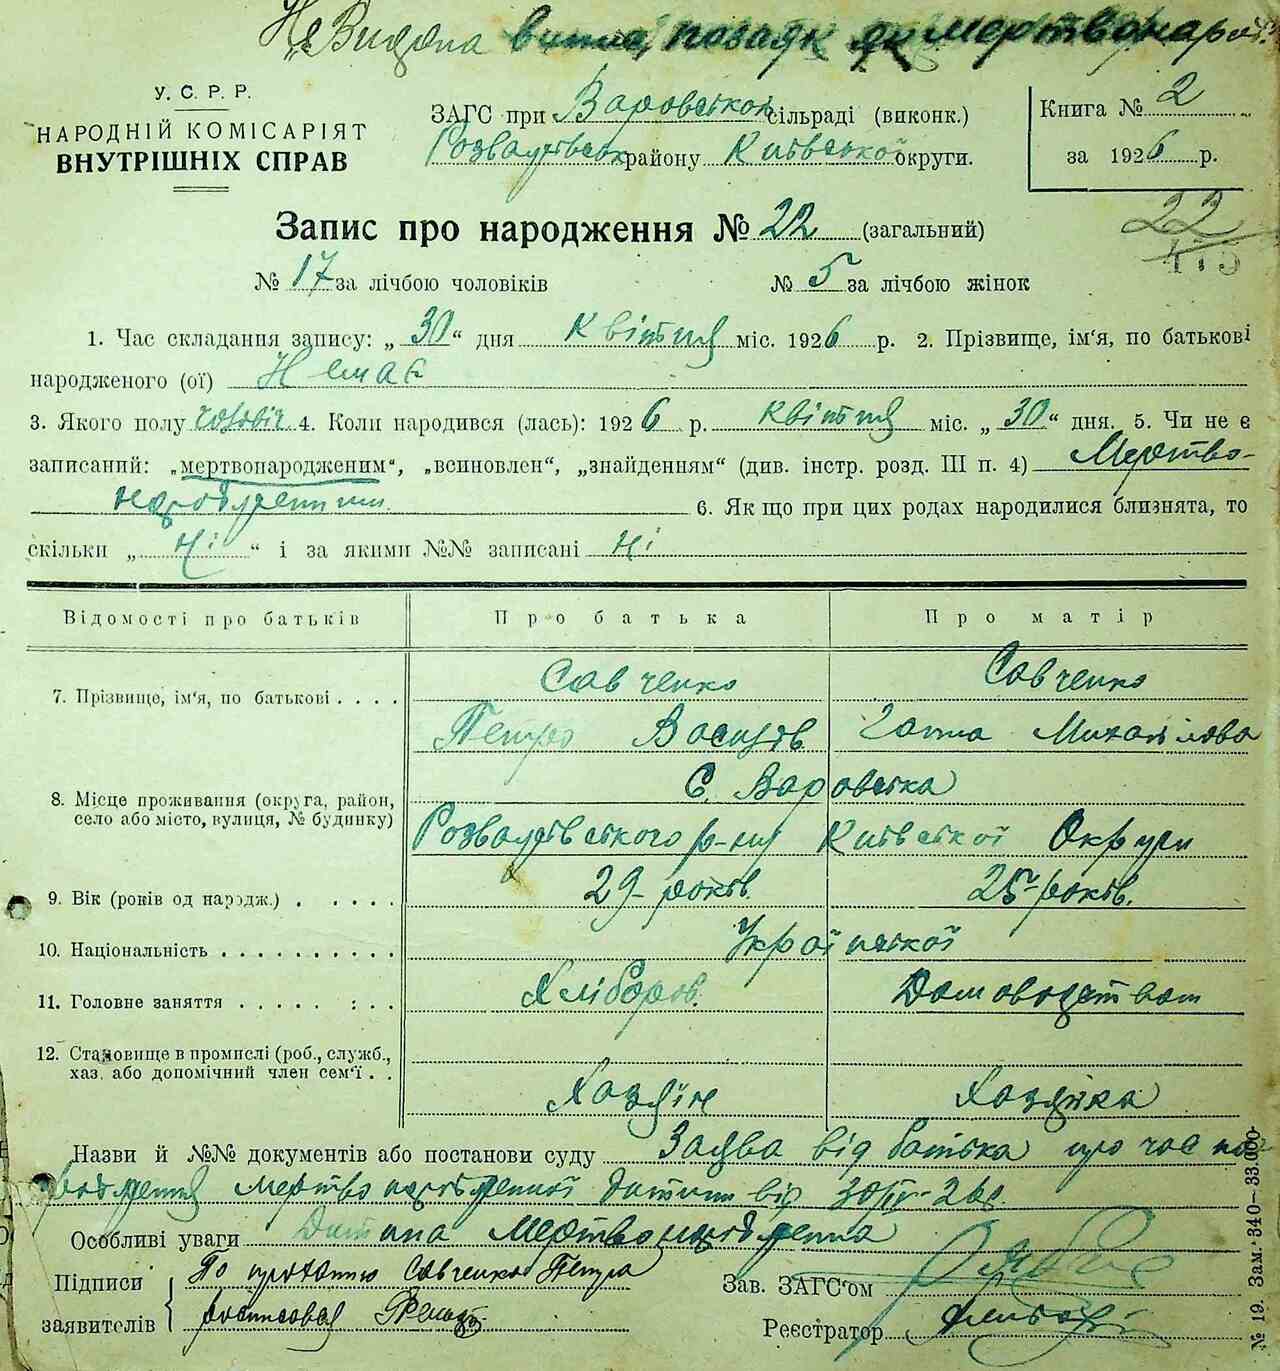 Не Видана витяг, позаяк як мертвонарод.
У. С. Р. Р.
НАРОДНІЙ КОМІСАРІЯТ
ВНУТРІШНІХ СПРАВ
ЗАГС при Варовській сільраді (виконк.)
Розважівськ району Київської округи.
Книга № 2
за 1926 р.
Запис про народження № 22 (загальний)
22
475
№ 17 за лічбою чоловіків № 5 за лічбою жінок
1. Час складання запису: „30“ дня Квітня міс. 1926 р. 2. Прізвище, ім'я, по батькові
народженого (ої) Немає
3. Якого полу чоловіч 4. Коли народився (лась): 1926 р. Квітня міс. „30“ дня. 5. Чи не є
записаний: „мертвонародженим“, „всиновлен“, „знайденням“ (див. інстр. розд. III п. 4) Мертво-
народженим. 6. Як що при цих родах народилися близнята, то
скільки „ні“ і за якими №№ записані ні
Відомості про батьків Про батька Про матір
7. Прізвище, ім'я, по батькові . . . . Савченко Савченко
Петро Василів. Ганна Михайлова
8. Місце проживання (округа, район, село або місто, вулиця, № будинку) С. Варовська
Розважівського р-ну Київської Округи
9. Вік (років од народж.) . . . . . 29-років. 25-років.
10. Національність . . . . . . . . . . Української
11. Головне заняття . . . . . : . . Хлібороб. Домоводством
12. Становище в промислі (роб., служб.,
хаз. або допомічний член сем'ї . . Хазяїн Хазяйка
Назви й №№ документів або постанови суду Заява від батька про час на-
родження мертвонародженої дитини від 30/IV-26р.
Особливі уваги Дитина мертвонароджена
Підписи заявителів По проханню Савченко Петра
росписовся
Зав. ЗАГС'ом
Реєстратор
№ 19. Зам. 340—33.000